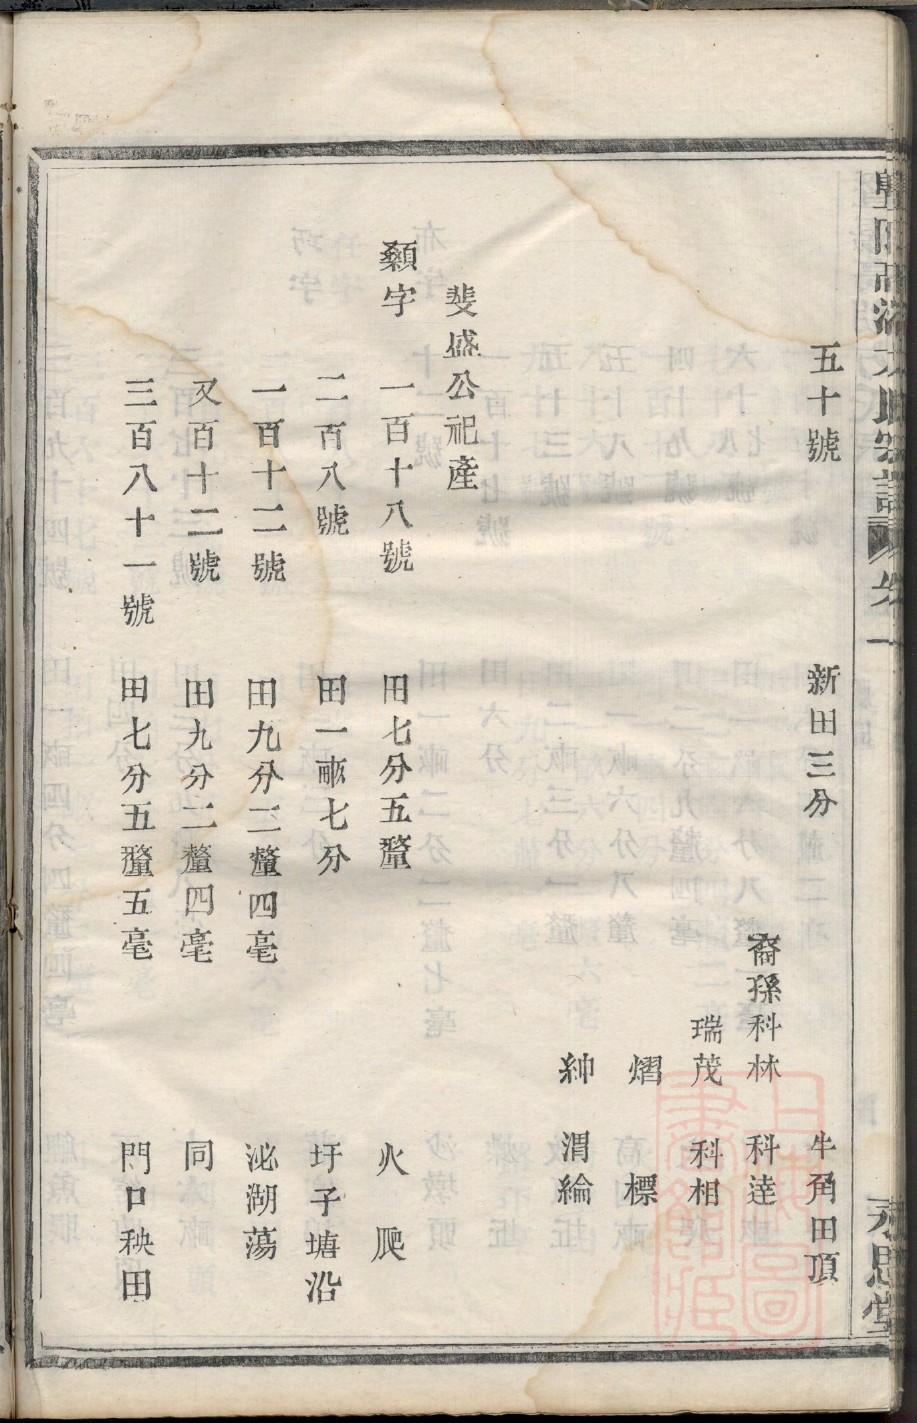 五十號　新田三分　牛角田頂
裔孫科林　科逹
瑞茂　科相
熠　標
紳　渭綸
斐盛公祀產
顙字　一百十八號　田七分五釐　火爬
二百八號　田一畝七分　圩子塘沿
一百十二號　田九分二釐四毫　泌湖蕩
又百十二號　田九分二釐四毫　同
三百八十一號　田七分五釐五毫　門口秧田